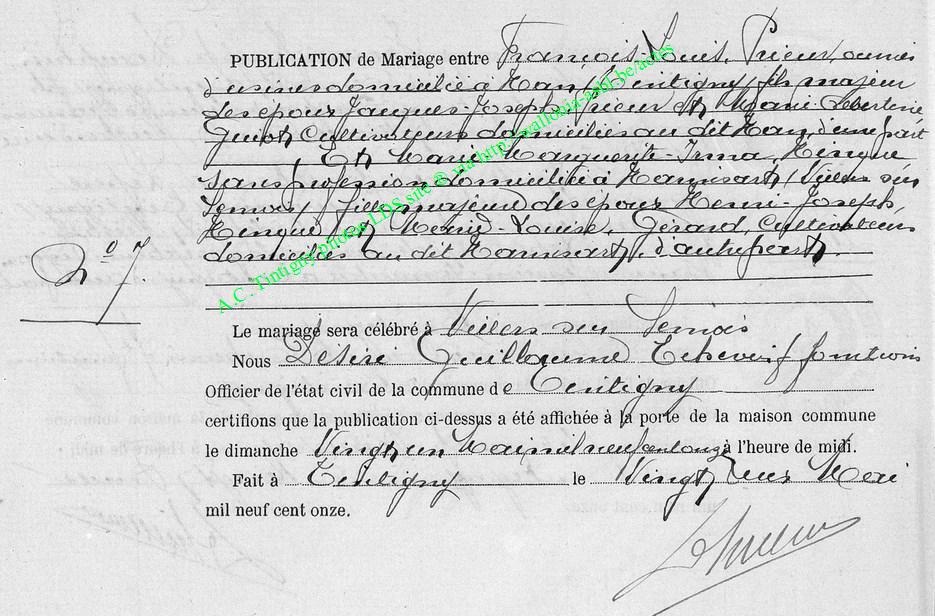 PUBLICATION de Mariage entre François-Louis, Prieur, ouvrier
d'usines domicilié à Han / Tintigny / fils majeur
des époux Jacques-Joseph Prieur et Marie-
Guiot, Cultivateurs domiciliés au dit Han, d'une part
Et Marie-Marguerite-Irma, Hinque
sans profession domiciliée à / Villers sur
Semois / fille majeure des époux Henri-Joseph,
Hinque et Marie-Louise, Gérard, Cultivateurs
domiciliés au dit d'autre part.
N° 7.
A.C. Tintigny photos LDS site @ via http://wallonia-asbl.be/actes
Le mariage sera célébré à Villers sur Semois
Nous Désiré Guillaume
Officier de l'état civil de la commune de Tintigny
certifions que la publication ci-dessus a été affichée à la porte de la maison commune
le dimanche Vingt un Mai mil neuf cent onze à l'heure de midi.
Fait à Tintigny le Vingt deux Mai
mil neuf cent onze.